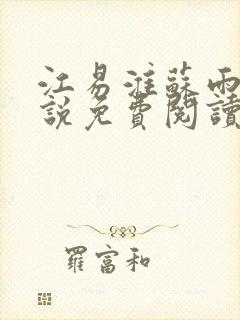 江易淮蘇雨
說免費閱讀
羅富和